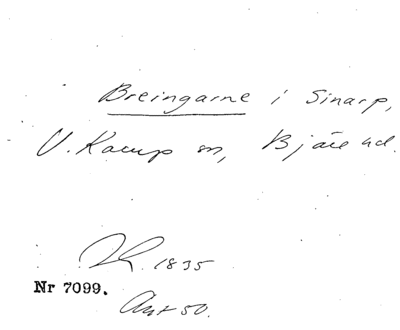 Breingarne i Sinarp,
V. Karup sn, Bjäre hd.
1835
Nr 7099.
50.